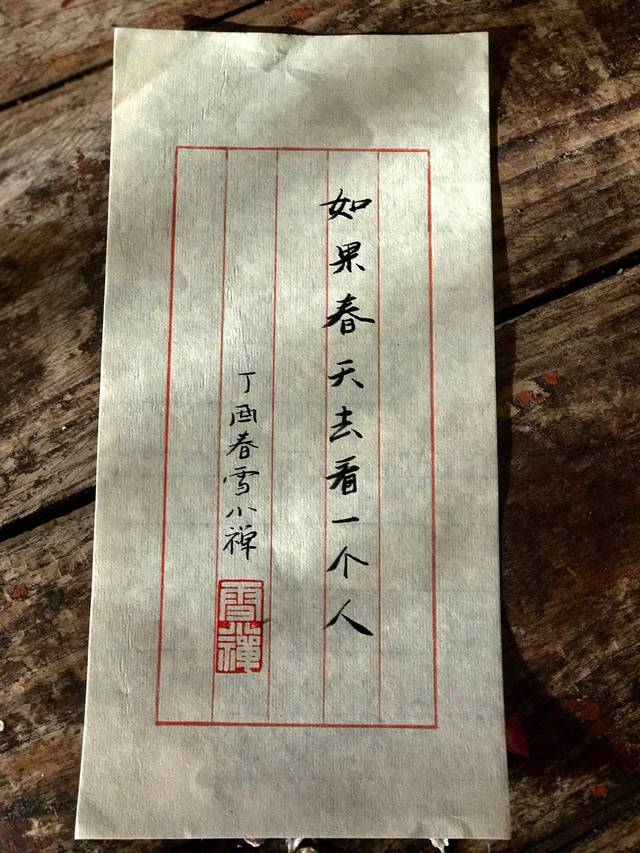 如果春天去看一个人
丁酉春雪小禅
雪小禪